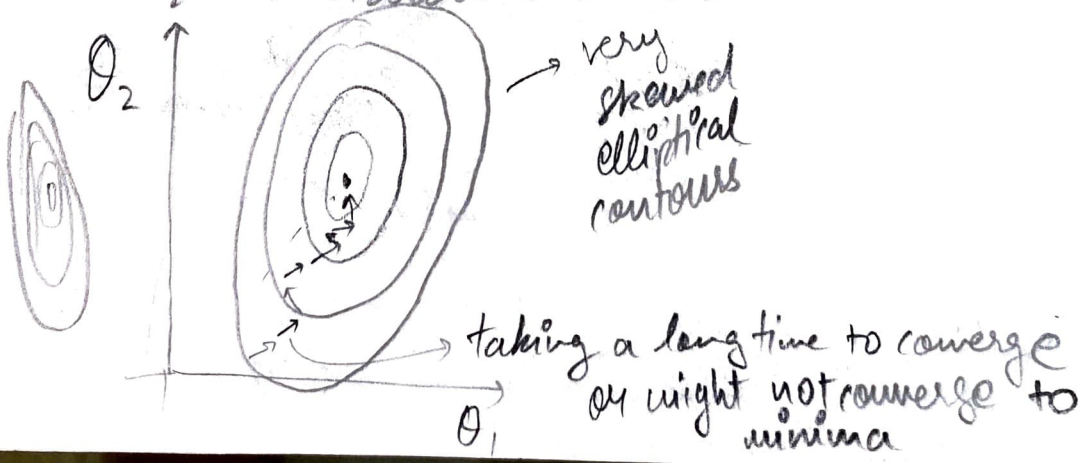 θ₂
very
skewed
elliptical
contours
taking a long time to converge
or might not converge to
minima
θ₁